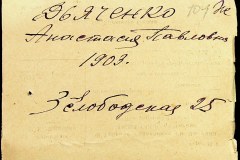 Дьяченко
Анастасия Павловна
1903.
3 Слободская 25